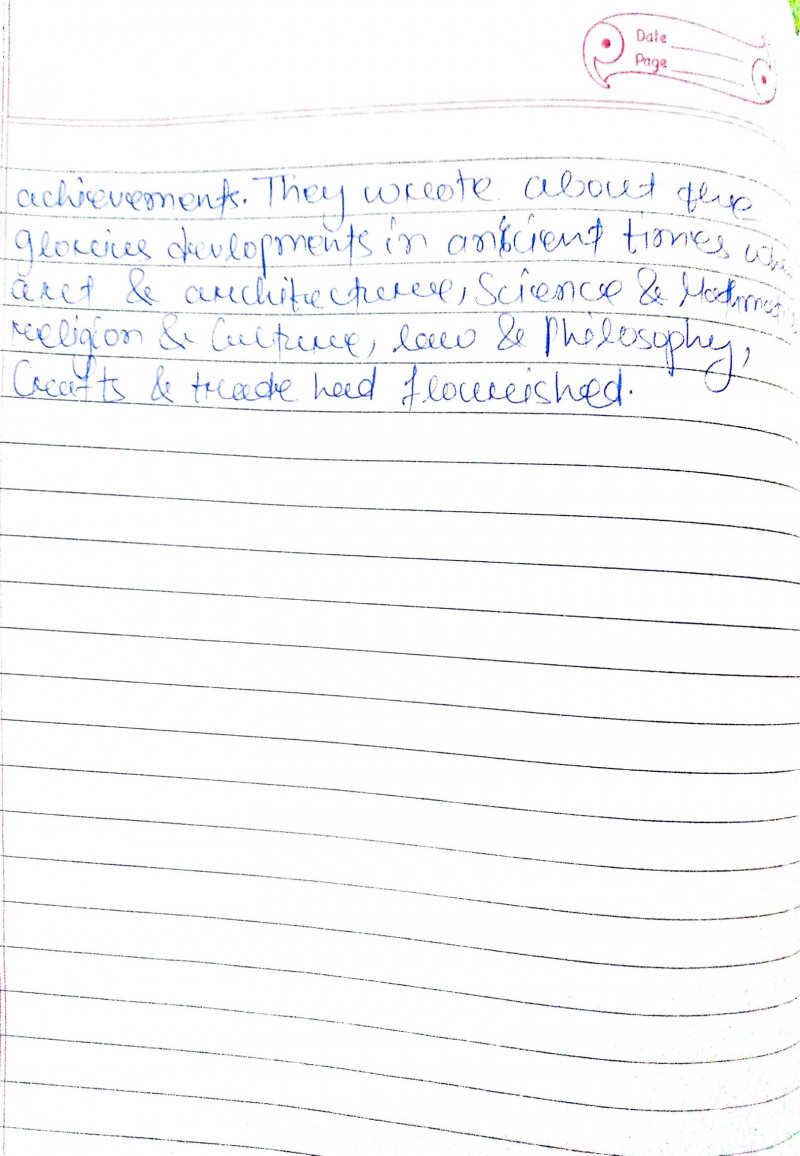 Date
Page
achievements. They wrote about the
glories devlopments in ancient times
art & architecture, Science &
religion & Culture, law & Philosophy,
Crafts & trade had flourished.